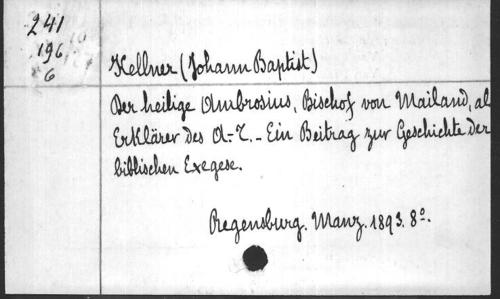 241
196
6
Kellner (Johann Baptist)
Der heilige Ambrosius, Bischof von Mailand, al
Erklärer des A.-T. - Ein Beitrag zur Geschichte der
biblischen Exegese.
Regensburg. Manz. 1893. 8º.